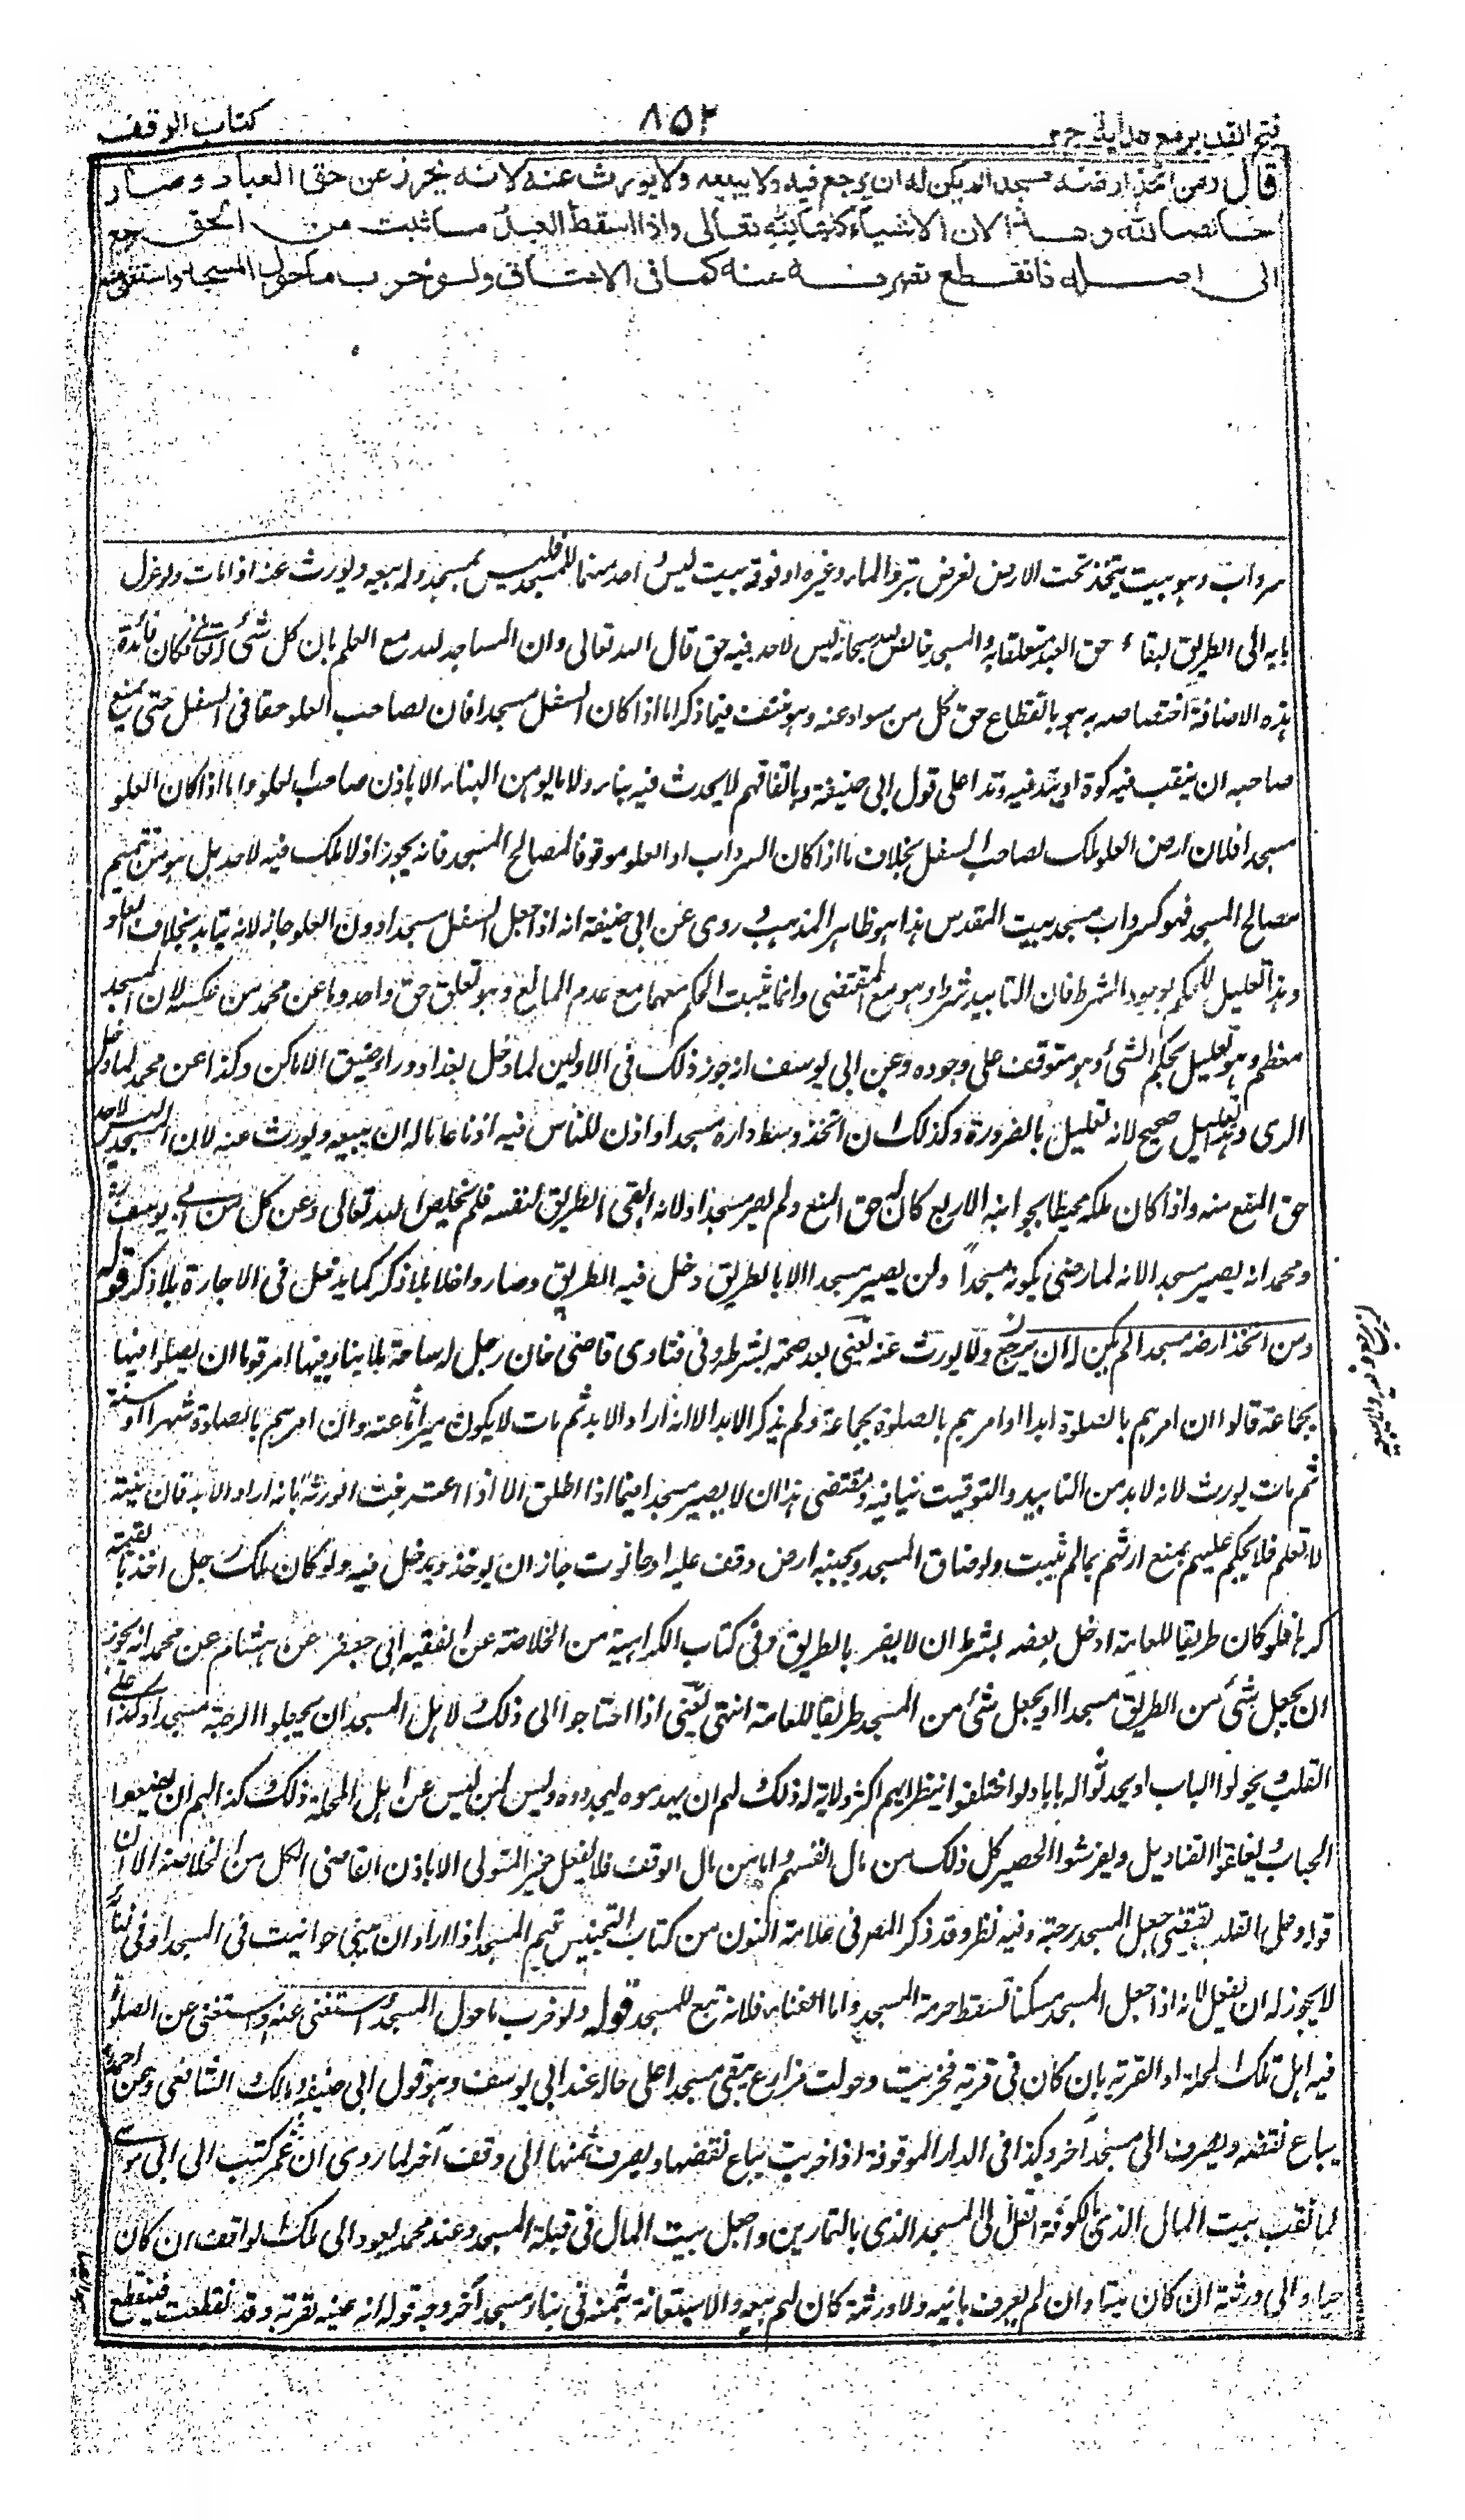 فتح القدير مع هداية ج ٢
٨٥٢
كتاب الوقف
قال ومن اتخذ ارضه مسجدا لم يكن له ان يرجع فيه ولا يبيعه ولا يورث عنه لانه يحرز عن حق العباد وصار
خالصا لله وهذا لان الاشياء كلها لله تعالى واذا اسقط العبد ما ثبت من الحق رجع
الى اصله فانقطع تصرفه عنه كما فى الاعتاق ولو خرب ما حول المسجد واستغنى عنه
سرداب وهو بيت يتخذ تحت الارض لغرض تبريد الماء وغيره او فوقه بيت ليس احد منهما للمسجد فليس بمسجد وله بيعه ويورث عنه اذا مات ولو عزل
بابه الى الطريق لبقاء حق العبد متعلقا به والمسجد خالص لله سبحانه ليس لاحد فيه حق قال الله تعالى وان المساجد لله مع العلم بان كل شئ له تعالى فكان فائدة
هذه الاضافة اختصاصه به وهو بانقطاع حق كل من سواه عنه وهو منتف فيما ذكر اما اذا كان السفل مسجدا فان لصاحب العلو حقا فى السفل حتى يمنع
صاحبه ان ينقب فيه كوة او يتد فيه وتدا على قول ابى حنيفة وباتفاقهم لا يحدث فيه بناء ولا ما يوهن البناء الا باذن صاحب العلو واما اذا كان العلو
مسجدا فلان ارض العلو ملك لصاحب السفل بخلاف ما اذا كان السرداب او العلو موقوفا لمصالح المسجد فانه يجوز اذ لا ملك فيه لاحد بل هو من تتميم
مصالح المسجد فهو كسرداب مسجد بيت المقدس هذا هو ظاهر المذهب وروى عن ابى حنيفة انه اذا جعل السفل مسجدا دون العلو جاز لانه يتابد بخلاف العلو
وهذا تعليل للحكم بوجود الشرط فان التابيد شرط وهو مع المقتضى وانما يثبت الحكم معهما مع عدم المانع وهو تعلق حق واحد وما عن محمد من عكسه لان المسجد
معظم وهو تعليل بحكم الشئ وهو متوقف على وجوده وعن ابى يوسف انه جوز ذلك فى الاولين لما دخل بغداد وراى ضيق الاماكن وكذا عن محمد لما دخل
الرى وهذا تعليل صحيح لانه تعليل بالضرورة وكذلك ان اتخذ وسط داره مسجدا واذن للناس فيه اذنا عاما له ان يبيعه ويورث عنه لان المسجد ليس لاحد
حق المنع منه واذا كان ملكه محيطا بجوانبه الاربع كان له حق المنع ولم يصر مسجدا ولانه ابقى الطريق لنفسه فلم يخلص لله تعالى وعن كل من ابى يوسف
ومحمد انه يصير مسجدا لانه لما رضى بكونه مسجدا ولن يصير مسجدا الا بالطريق دخل فيه الطريق وصار داخلا بلا ذكر كما يدخل فى الاجارة بلا ذكر قوله
ومن اتخذ ارضه مسجدا لم يكن له ان يرجع ولا يورث عنه يعنى بعد صحته بشرطه وفى فتاوى قاضى خان رجل له ساحة بلا بناء فيها امر قوما ان يصلوا فيها
بجماعة قالوا ان امرهم بالصلوة ابدا او امرهم بالصلوة بجماعة ولم يذكر الابد الا انه اراد الابد ثم مات لا يكون ميراثا عنه وان امرهم بالصلوة شهرا او سنة
ثم مات يورث لانه لا بد من التابيد والتوقيت ينافيه ومقتضى هذا ان لا يصير مسجدا فيما اذا اطلق الا اذا اعترفت الورثة بانه اراد الابد فان نيته
لا تعلم فلا يحكم عليهم بمنع ارثهم بما لم يثبت ولو ضاق المسجد وبجنبه ارض وقف عليه او حانوت جاز ان يوخذ ويدخل فيه ولو كان ملك رجل اخذ بالقيمة
كرها فلو كان طريقا للعامة ادخل بعضه بشرط ان لا يضر بالطريق وفى كتاب الكراهية من الخلاصة عن الفقيه ابى جعفر عن هشام عن محمد انه يجوز
ان يجعل شئ من الطريق مسجدا او يجعل شئ من المسجد طريقا للعامة انتهى يعنى اذا احتاجوا الى ذلك لاهل المسجد ان يجعلوا الرحبة مسجدا وكذا على
القلب ويحولوا الباب او يحدثوا له بابا ولو اختلفوا ينظر ايهم اكثر ولاية له ذلك لهم ان يهدموه ليجددوه وليس لمن ليس من اهل المحلة ذلك كذا لهم ان يضعوا
الحباب ويعلقوا القناديل ويفرشوا الحصير كل ذلك من مال انفسهم واما من مال الوقف فلا يفعل غير المتولى الا باذن القاضى الكل من الخلاصة الا ان
قوله وعلى القلب يقتضى جعل المسجد رحبة وفيه نظر وقد ذكر المصر فى علامة النون من كتاب التجنيس قيم المسجد اذا اراد ان يبنى حوانيت فى المسجد او فى فنائه
لا يجوز له ان يفعل لانه اذا جعل المسجد مسكنا تسقط حرمة المسجد واما الفناء فلانه تبع للمسجد قوله ولو خرب ما حول المسجد واستغنى عنه اى استغنى عن الصلوة
فيه اهل تلك المحلة او القرية بان كان فى قرية فخربت وحولت مزارع يبقى مسجدا على حاله عند ابى يوسف وهو قول ابى حنيفة ومالك والشافعى وعن احمد
يباع نقضه ويصرف الى مسجد آخر وكذا فى الدار الموقوفة اذا خربت يباع نقضها ويصرف ثمنها الى وقف آخر لما روى ان عمر كتب الى ابى موسى
لما نقب بيت المال الذى بالكوفة انقل الى المسجد الذى بالتمارين واجعل بيت المال فى قبلة المسجد وعند محمد يعود الى ملك الواقف ان كان
حيا والى ورثته ان كان ميتا وان لم يعرف بانيه ولا ورثته كان لهم بيعه والاستعانة بثمنه فى بناء مسجد آخر وجه قوله انه عينه لقربة وقد انقطعت فينقطع